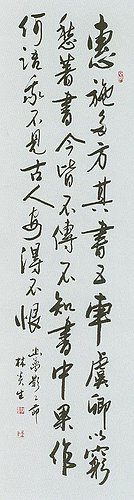 惠施多方其書五車虞卿以窮
愁著書今皆不傳不知書中果作
何語我不見古人安得不恨
幽夢影
林炎生